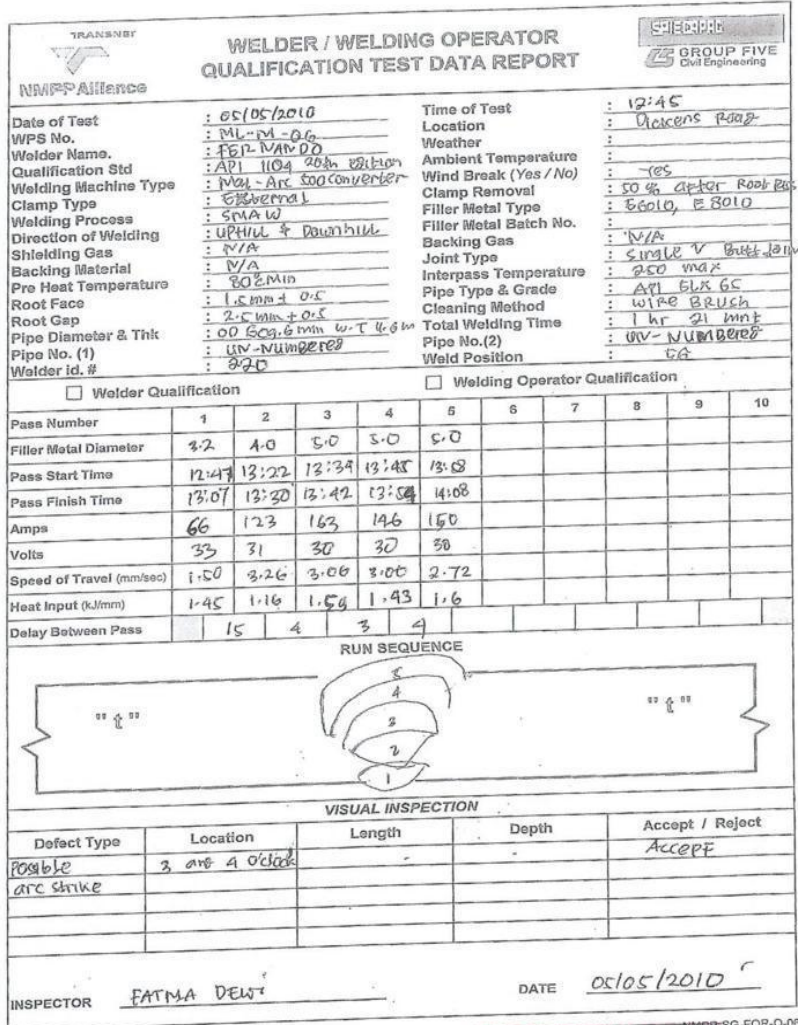 TRANSNET
NMPP Alliance
WELDER / WELDING OPERATOR
QUALIFICATION TEST DATA REPORT
SPIECAPAG
GROUP FIVE
Civil Engineering
Date of Test : 05/05/2010
WPS No. : ML-M-06
Welder Name. : FERNANDO
Qualification Std : API 1104 20th Edition
Welding Machine Type : Mat-Arc 500 Converter
Clamp Type : External
Welding Process : SMAW
Direction of Welding : UPHILL & Downhill
Shielding Gas : N/A
Backing Material : N/A
Pre Heat Temperature : 80° Min
Root Face : 1.5mm ± 0.5
Root Gap : 2.5mm ± 0.5
Pipe Diameter & Thk : OD mm W.T
Pipe No. (1) : UN-Numbered
Welder id. # : 220
Time of Test : 12:45
Location : Dickens Road
Weather :
Ambient Temperature :
Wind Break (Yes / No) : Yes
Clamp Removal : 50 % after Root Pass
Filler Metal Type : E6010, E8010
Filler Metal Batch No. :
Backing Gas : N/A
Joint Type : Single V Butt Joint
Interpass Temperature : 250 max
Pipe Type & Grade : API 5LX 65
Cleaning Method : WIRE BRUSH
Total Welding Time : 1 hr 21 mnt
Pipe No.(2) : UN-NUMBERED
Weld Position : 6G
Welder Qualification Welding Operator Qualification
Pass Number 1 2 3 4 5 6 7 8 9 10
Filler Metal Diameter 3.2 4.0 5.0 5.0 5.0
Pass Start Time 12:47 13:22 13:39 13:45 13:58
Pass Finish Time 13:07 13:30 13:42 13:54 14:08
Amps 66 123 163 146 150
Volts 33 31 30 30 30
Speed of Travel (mm/sec) 1.50 3.26 3.06 3.06 2.72
Heat Input (kJ/mm) 1.45 1.16 1.59 1.43 1.6
Delay Between Pass 15 4 3 4
RUN SEQUENCE
5
4
"t" "t"
3
2
1
VISUAL INSPECTION
Defect Type Location Length Depth Accept / Reject
Possible 3 and 4 o'clock - - Accept
arc strike
INSPECTOR FATMA DEWI DATE 05/05/2010